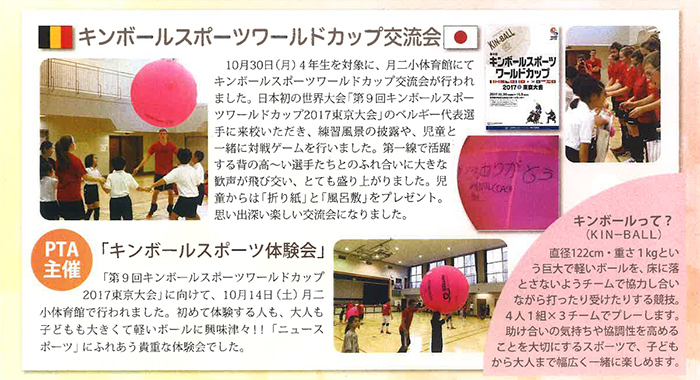 キンボールスポーツワールドカップ交流会
10月30日(月)4年生を対象に、月二小体育館にて
キンボールスポーツワールドカップ交流会が行われ
ました。日本初の世界大会「第9回キンボールスポー
ツワールドカップ2017東京大会」のベルギー代表選
手に来校いただき、練習風景の披露や、児童と
一緒に対戦ゲームを行いました。第一線で活躍
する背の高〜い選手たちとのふれ合いに大きな
歓声が飛び交い、とても盛り上がりました。児
童からは「折り紙」と「風呂敷」をプレゼント。
思い出深い楽しい交流会になりました。
KIN-BALL
キンボールスポーツ
ワールドカップ
2017 東京大会
ありがとう
PTA
主催
「キンボールスポーツ体験会」
「第9回キンボールスポーツワールドカップ
2017東京大会」に向けて、10月14日(土)月二
小体育館で行われました。初めて体験する人も、大人も
子どもも大きくて軽いボールに興味津々!!「ニュース
ポーツ」にふれあう貴重な体験会でした。
キンボールって?
(KIN−BALL)
直径122cm・重さ1kgとい
う巨大で軽いボールを、床に落
とさないようチームで協力し合い
ながら打ったり受けたりする競技。
4人1組×3チームでプレーします。
助け合いの気持ちや協調性を高める
ことを大切にするスポーツで、子ども
から大人まで幅広く一緒に楽しめます。